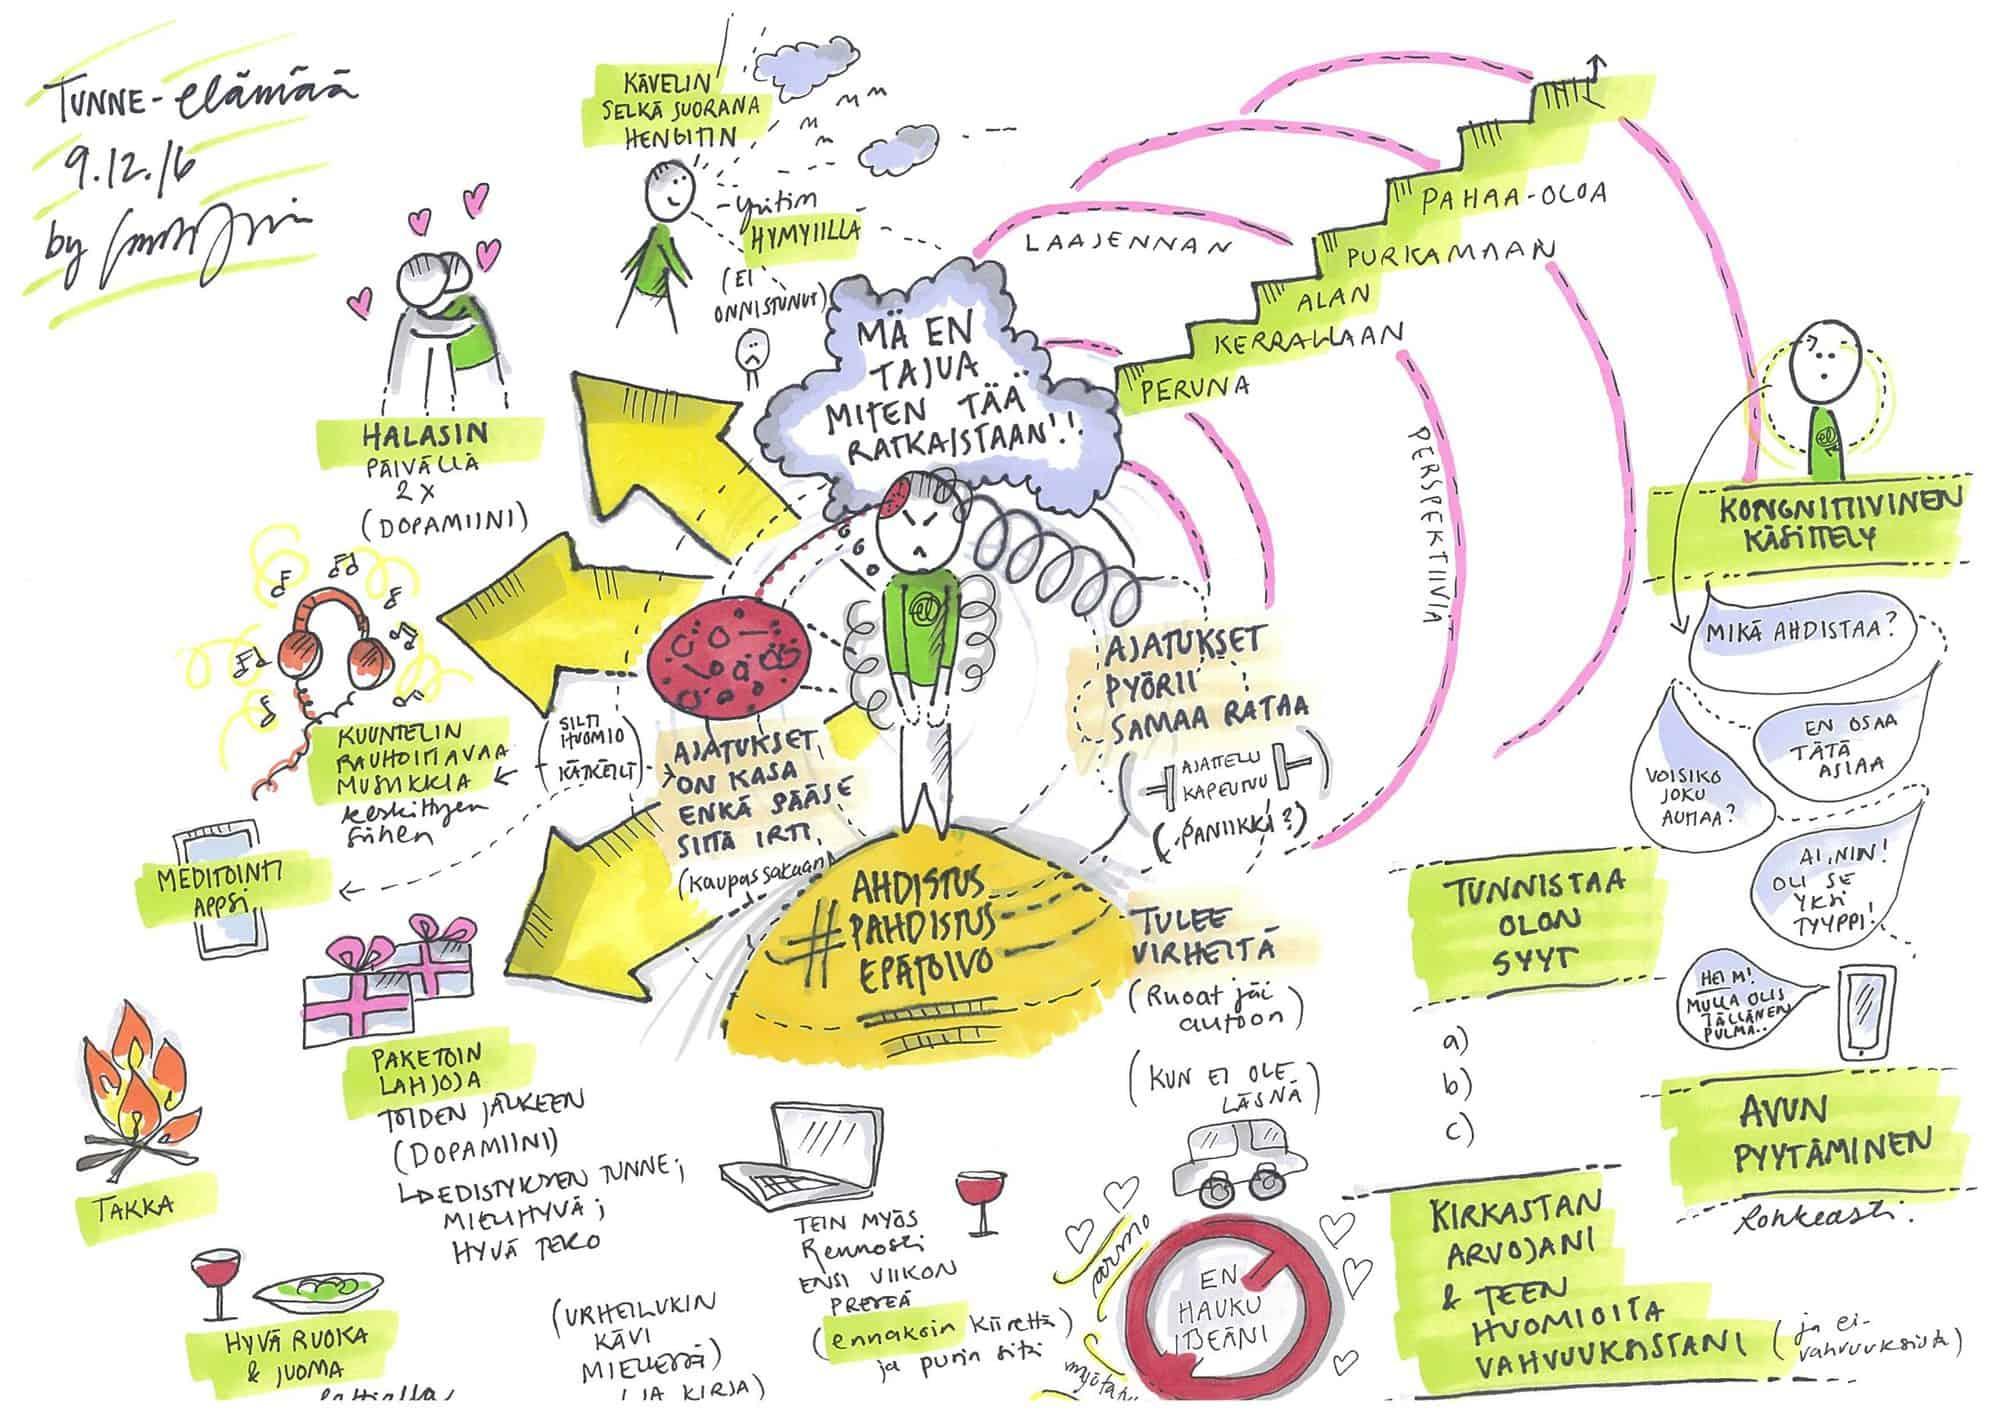 TUNNE-elämää
9.12.16
by
KÄVELIN
SELKÄ SUORANA
HENGITIN
- yritin
HYMYILLÄ
(EI
ONNISTUNUT)
HALASIN
PÄIVÄLLÄ
2 X
(DOPAMIINI)
MÄ EN
TAJUA
MITEN TÄÄ
RATKAISTAAN!!
LAAJENNAN
PERSPEKTIIVIÄ
PAHAA-OLOA
PURKAMAAN
ALAN
KERRALLAAN
PERUNA
KONGNITIIVINEN
KÄSITTELY
MIKÄ AHDISTAA?
EN OSAA
TÄTÄ
ASIAA
VOISIKO
JOKU
AUTTAA?
AI, NIIN!
OLI SE
YKSI
TYYPPI!
HEI M!
MULLA OLIS
TÄLLÄNEN
PULMA..
AVUN
PYYTÄMINEN
Rohkeasti.
KUUNTELIN
RAUHOITTAVAA
MUSIIKKIA
keskittyen
siihen
(SILTI
HUOMIO
KÄTKEILI)
MEDITOINTI
APPSI
AJATUKSET
ON KASA
ENKÄ PÄÄSE
SIITÄ IRTI
(kaupassakaan)
AJATUKSET
PYÖRII
SAMAA RATAA
(AJATTELU
KAPEUTUU)
(PANIIKKI?)
#
AHDISTUS
PAHDISTUS
EPÄTOIVO
TULEE
VIRHEITÄ
(Ruoat jäi
autoon)
(KUN EI OLE
LÄSNÄ)
TUNNISTAA
OLON
SYYT
a)
b)
c)
KIRKASTAN
ARVOJANI
& TEEN
HUOMIOITA
VAHVUUKSISTANI
(ja ei-
vahvuuksista)
PAKETOIN
LAHJOJA
TÖIDEN JÄLKEEN
(DOPAMIINI)
EDISTYKSEN TUNNE;
MIELIHYVÄ;
HYVÄ TEKO
TAKKA
HYVÄ RUOKA
& JUOMA
(URHEILUKIN
KÄVI
MIELESSÄ)
(JA KIRJA)
TEIN MYÖS
Rennosti
ENSI VIIKON
PREPEÄ
(ennakoin kiirettä)
ja purin sitä
armo
EN
HAUKU
ITSEÄNI